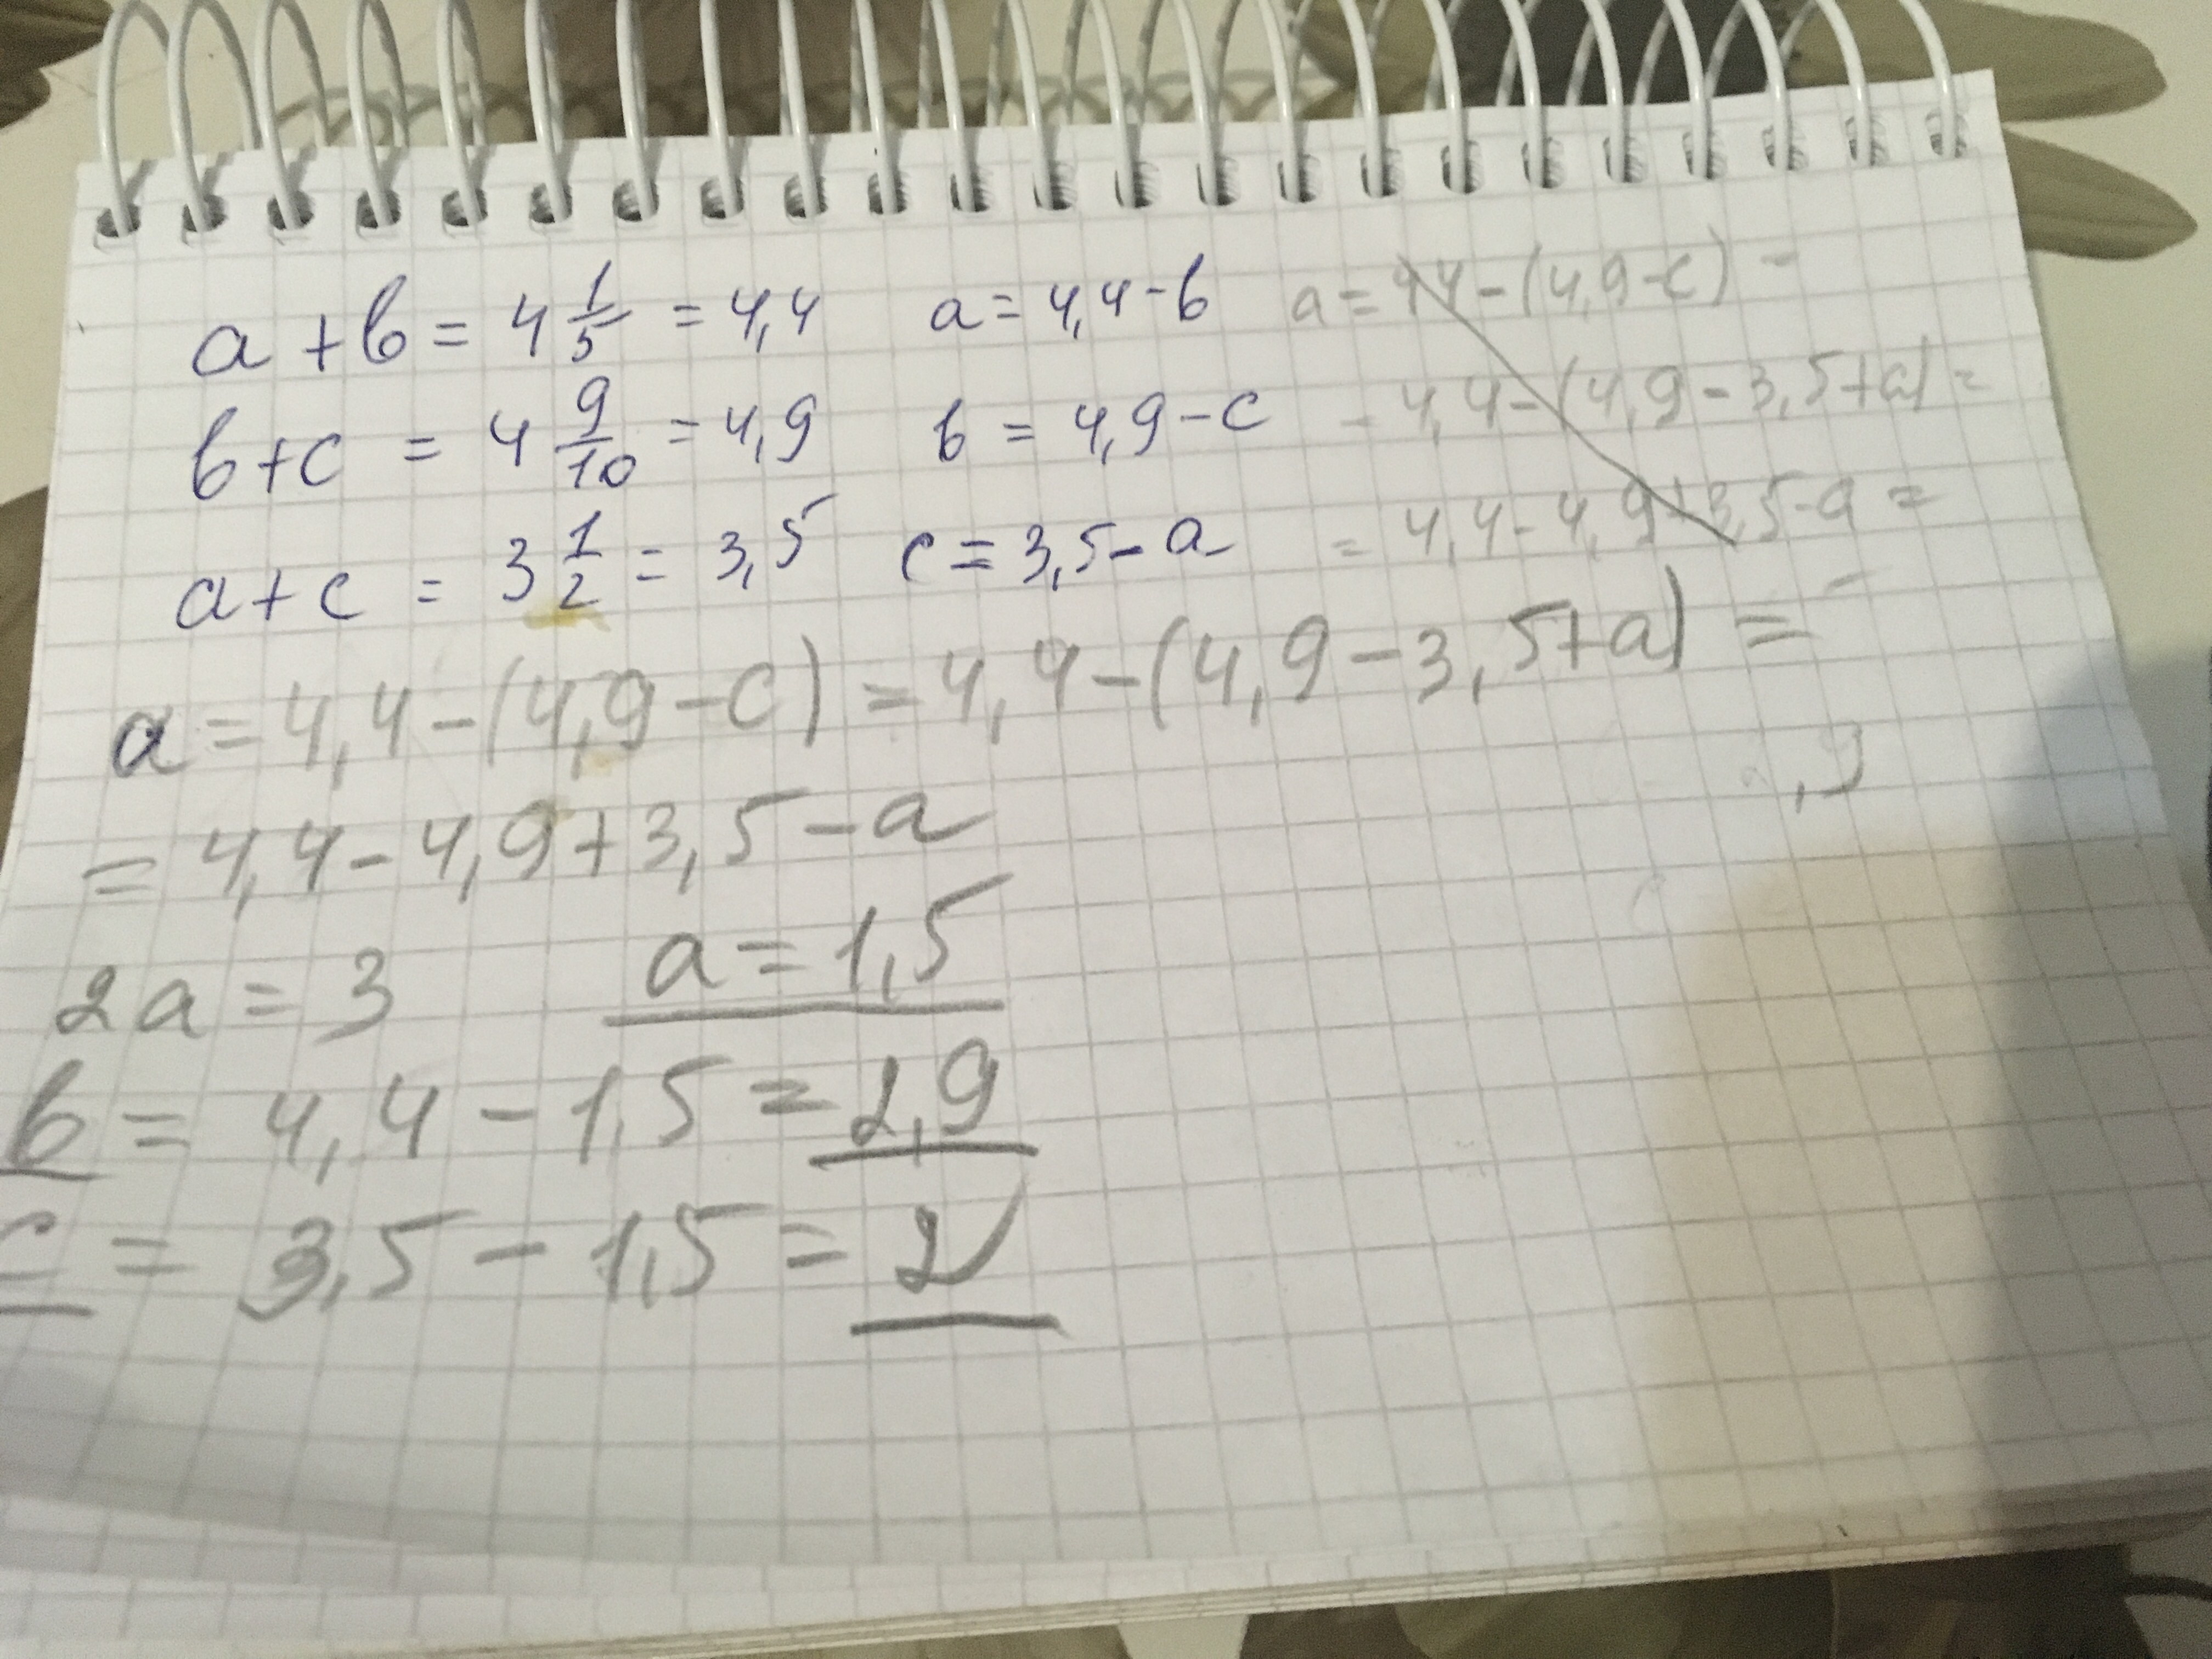 a + b = 4 1/5 = 4,4 a = 4,4 - b a = 4,4 - (4,9 - c) -
b + c = 4 9/10 = 4,9 b = 4,9 - c = 4,4 - (4,9 - 3,5 + a) =
a + c = 3 1/2 = 3,5 c = 3,5 - a = 4,4 - 4,9 + 3,5 - a =
a = 4,4 - (4,9 - c) = 4,4 - (4,9 - 3,5 + a) =
= 4,4 - 4,9 + 3,5 - a
2a = 3 a = 1,5
b = 4,4 - 1,5 = 2,9
c = 3,5 - 1,5 = 2